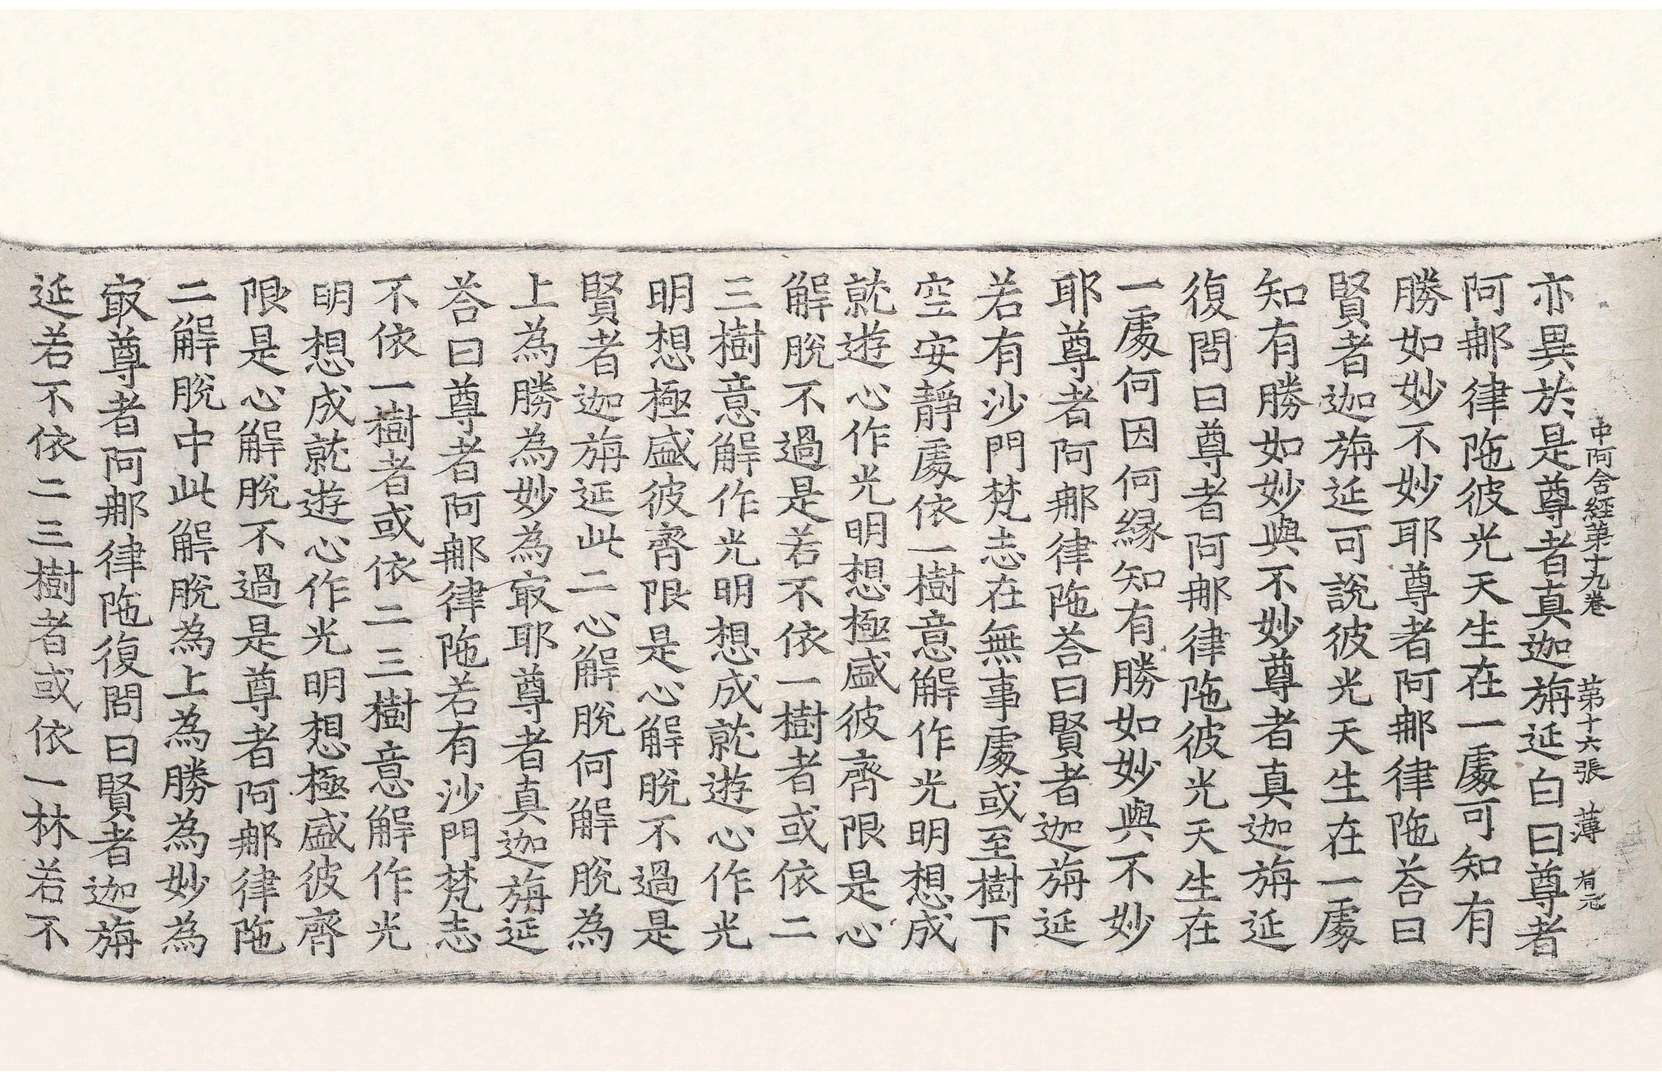 中阿含経第十九卷 第十六張 薄 有元
亦異於是尊者真迦旃延白曰尊者
阿那律陁彼光天生在一處可知有
勝如妙不妙耶尊者阿那律陁荅曰
賢者迦旃延可說彼光天生在一處
知有勝如妙與不妙尊者真迦旃延
復問曰尊者阿那律陁彼光天生在
一處何因何縁知有勝如妙與不妙
耶尊者阿那律陁荅曰賢者迦旃延
若有沙門梵志在無事處或至樹下
空安靜處依一樹意解作光明想成
就遊心作光明想極盛彼齊限是心
解脫不過是若不依一樹者或依二
三樹意解作光明想成就遊心作光
明想極盛彼齊限是心解脫不過是
賢者迦旃延此二心解脫何解脫為
上為勝為妙為㝡耶尊者真迦旃延
荅曰尊者阿那律陁若有沙門梵志
不依一樹者或依二三樹意解作光
明想成就遊心作光明想極盛彼齊
限是心解脫不過是尊者阿那律陁
二解脫中此解脫為上為勝為妙為
㝡尊者阿那律陁復問曰賢者迦旃
延若不依二三樹者或依一林若不